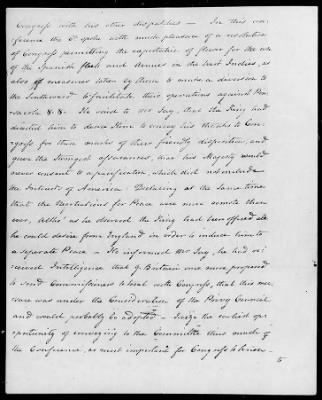 Congress with his other dispatches — In this con-
ference the Ct. spoke with much pleasure of a resolution
of Congress permitting the exportation of flour for the use
of the Spanish fleet and Armies in the West Indies, as
also of measures taken by them to make a diversion to
the Southward to facilitate their operations against Pen-
sacola &. &. He said to Mr Jay, that the King had
directed him to desire Him to convey his thanks to Con-
gress for these marks of their friendly disposition, and
gave the strongest assurances, that his Majesty would
never consent to a pacification, which did not include
the Interests of America. Declaring at the same time
that the Negotiations for Peace were more remote than
ever, altho' as he observed the King had been offered all
he could desire from England in order to induce him to
a separate Peace — He informed Mr Jay, he had re-
ceived Intelligence that G. Britain once more proposed
to send Commissioners to treat with Congress, that this mea-
sure was under the Consideration of the Privy Council
and would probably be adopted — I seize the earliest op-
portunity of conveying to the Committee thus much of
the Conference, as most important for Congress to be in-